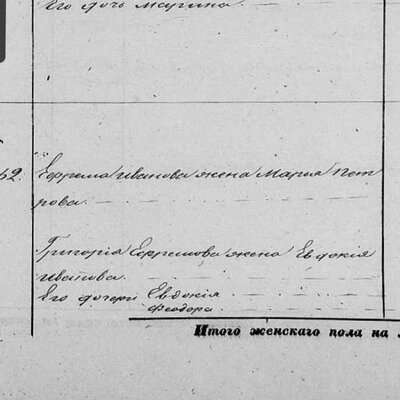 Его дочь Марина
52. Ефрема Иванова жена Мария Пет
рова.
Григорія Ефремова жена Евдокія
Иванова.
Его дочери Евдокія
Феодора
Итого женскаго пола на